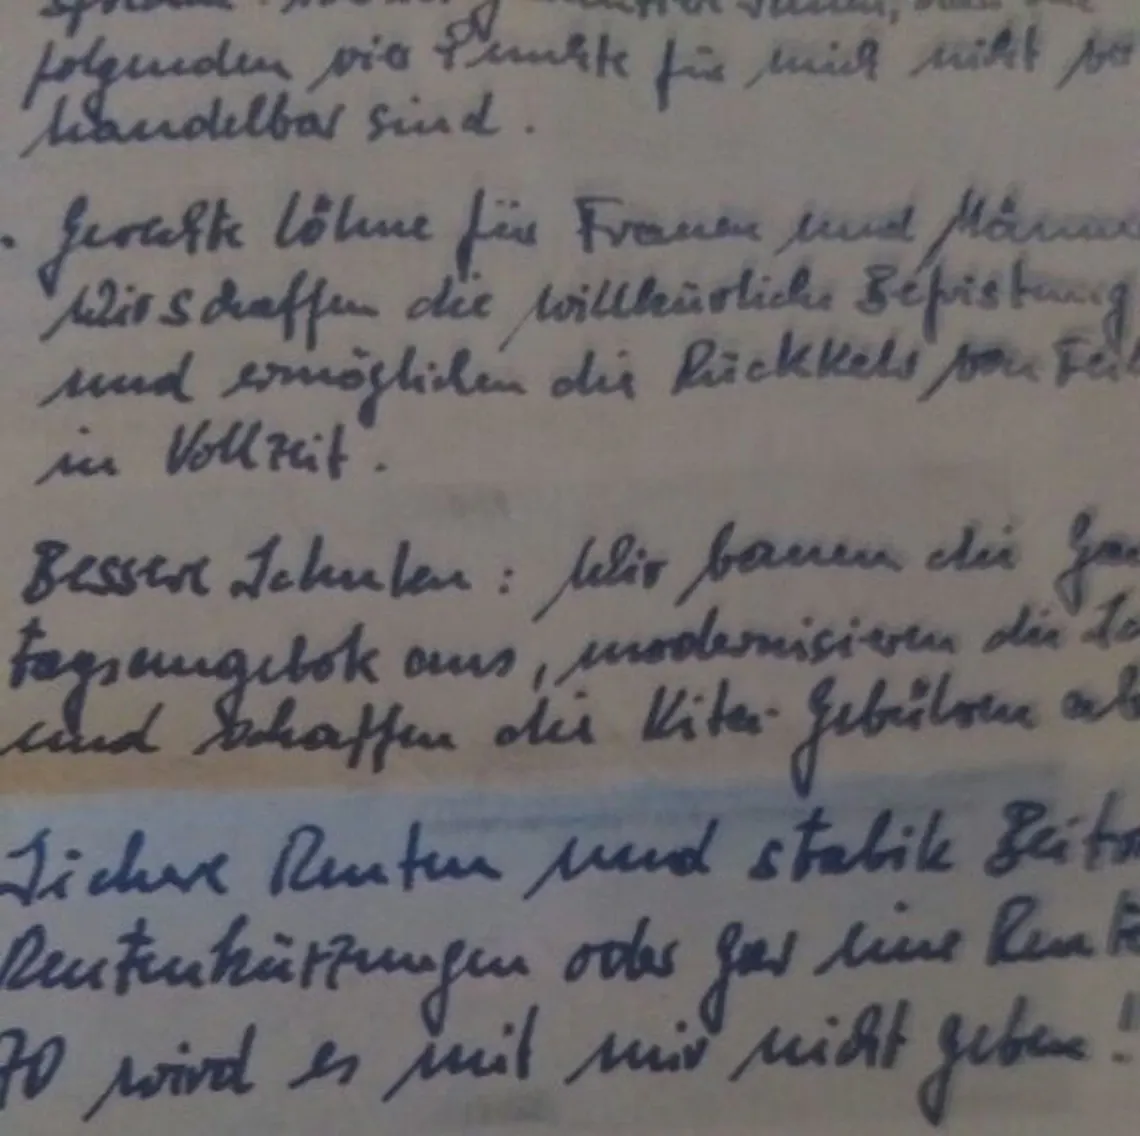 folgenden vier Punkte für mich nicht ver
handelbar sind.
Gerechte Löhne für Frauen und Männer
Wir schaffen die willkürliche Befristung
und ermöglichen die Rückkehr von Teil
in Vollzeit.
Bessere Schulen: Wir bauen die Gan
tagsangebote aus, modernisieren die Sc
und schaffen die Kita-Gebühren ab
Sichere Renten und stabile Beitra
Rentenkürzungen oder gar eine Rente
70 wird es mit mir nicht geben!